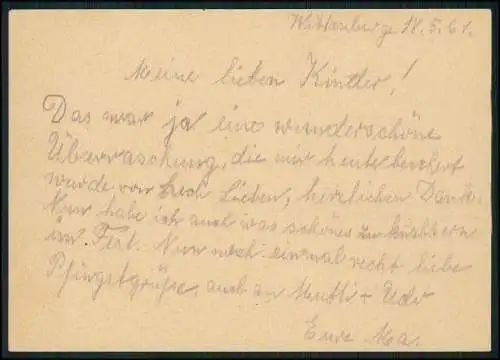 Wittenberge 18.5.61.
Meine lieben Kinder!
Das war ja eine wunderschöne
Überraschung, die mir heute beschert
wurde von Euch Lieben, herzlichen Dank.
Nun habe ich auch was schönes zu
im Fest. Nun noch einmal recht liebe
Pfingstgrüße, auch an Mutti + Udo
Eure Ma.